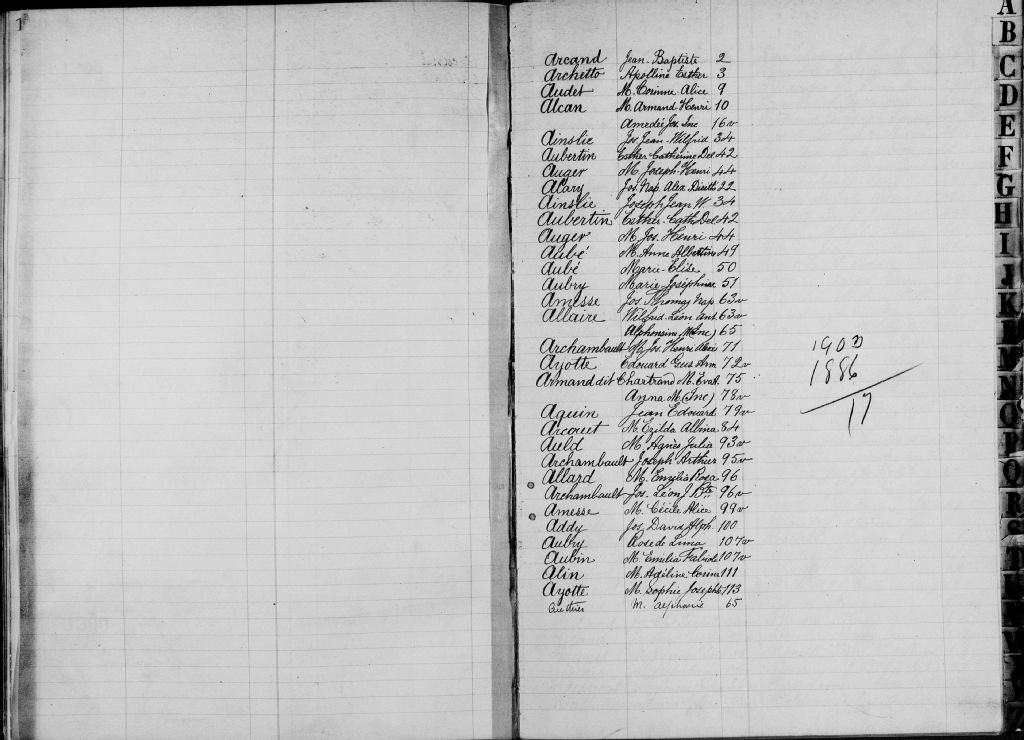 1
Arcand Jean-Baptiste 2
Archetto Apolline Esther 3
Audet M. Corinne Alice 9
Alcan M. Armand Henri 10
Amedée Jos. Inc 16v
Ainslie Jos. Jean Wilfrid 34
Aubertin Esther Catherine Del 42
Auger M. Joseph Henri 44
Alary Jos. Nap. Alex 22
Ainslie Joseph Jean W. 34
Aubertin Esther Cath. Del 42
Auger M. Jos. Henri 44
Aubé M. Anne Albertine 49
Aubé Marie-Elise 50
Aubry Marie Joséphine 51
Amesse Jos. Thomas Nap 63v
Allaire Wilfrid Léon Ant. 63v
Alphonsine M. (Inc) 65
Archambault Jos. Henri 71
Ayotte Edouard Gus Arm 72v
Armand dit Chartrand M. Eva 75
Anna M (Inc) 78v
Aquin Jean Edouard 79v
Arcouet M. Ezilda Albina 84
Auld M. Agnès Julia 93v
Archambault Joseph Arthur 95v
Allard M. Emylia Rosa 96
Archambault Jos. Léon Bte 96v
Amesse M. Cécile Alice 99v
Addy Jos. David Alph. 100
Aubry Rose de Lima 107v
Aubin M. Emilia 107v
Alin M. Adéline 111
Ayotte M. Sophie Joseph 113
M. 65
1902
1886
17
A
B
C
D
E
F
G
H
I
J
K
L
M
N
O
P
Q
R
S
T
V